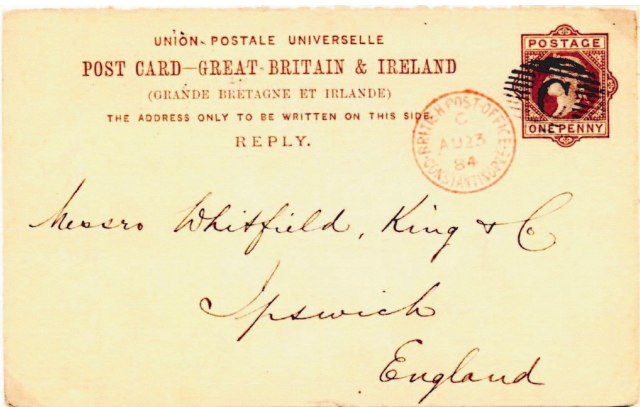 UNION POSTALE UNIVERSELLE
POST CARD—GREAT BRITAIN & IRELAND
(GRANDE BRETAGNE ET IRLANDE)
THE ADDRESS ONLY TO BE WRITTEN ON THIS SIDE.
REPLY.
POSTAGE
ONE PENNY
C
BRITISH POST OFFICE
C
AU 23
84
CONSTANTINOPLE
Messrs Whitfield, King & Co
Ipswich
England